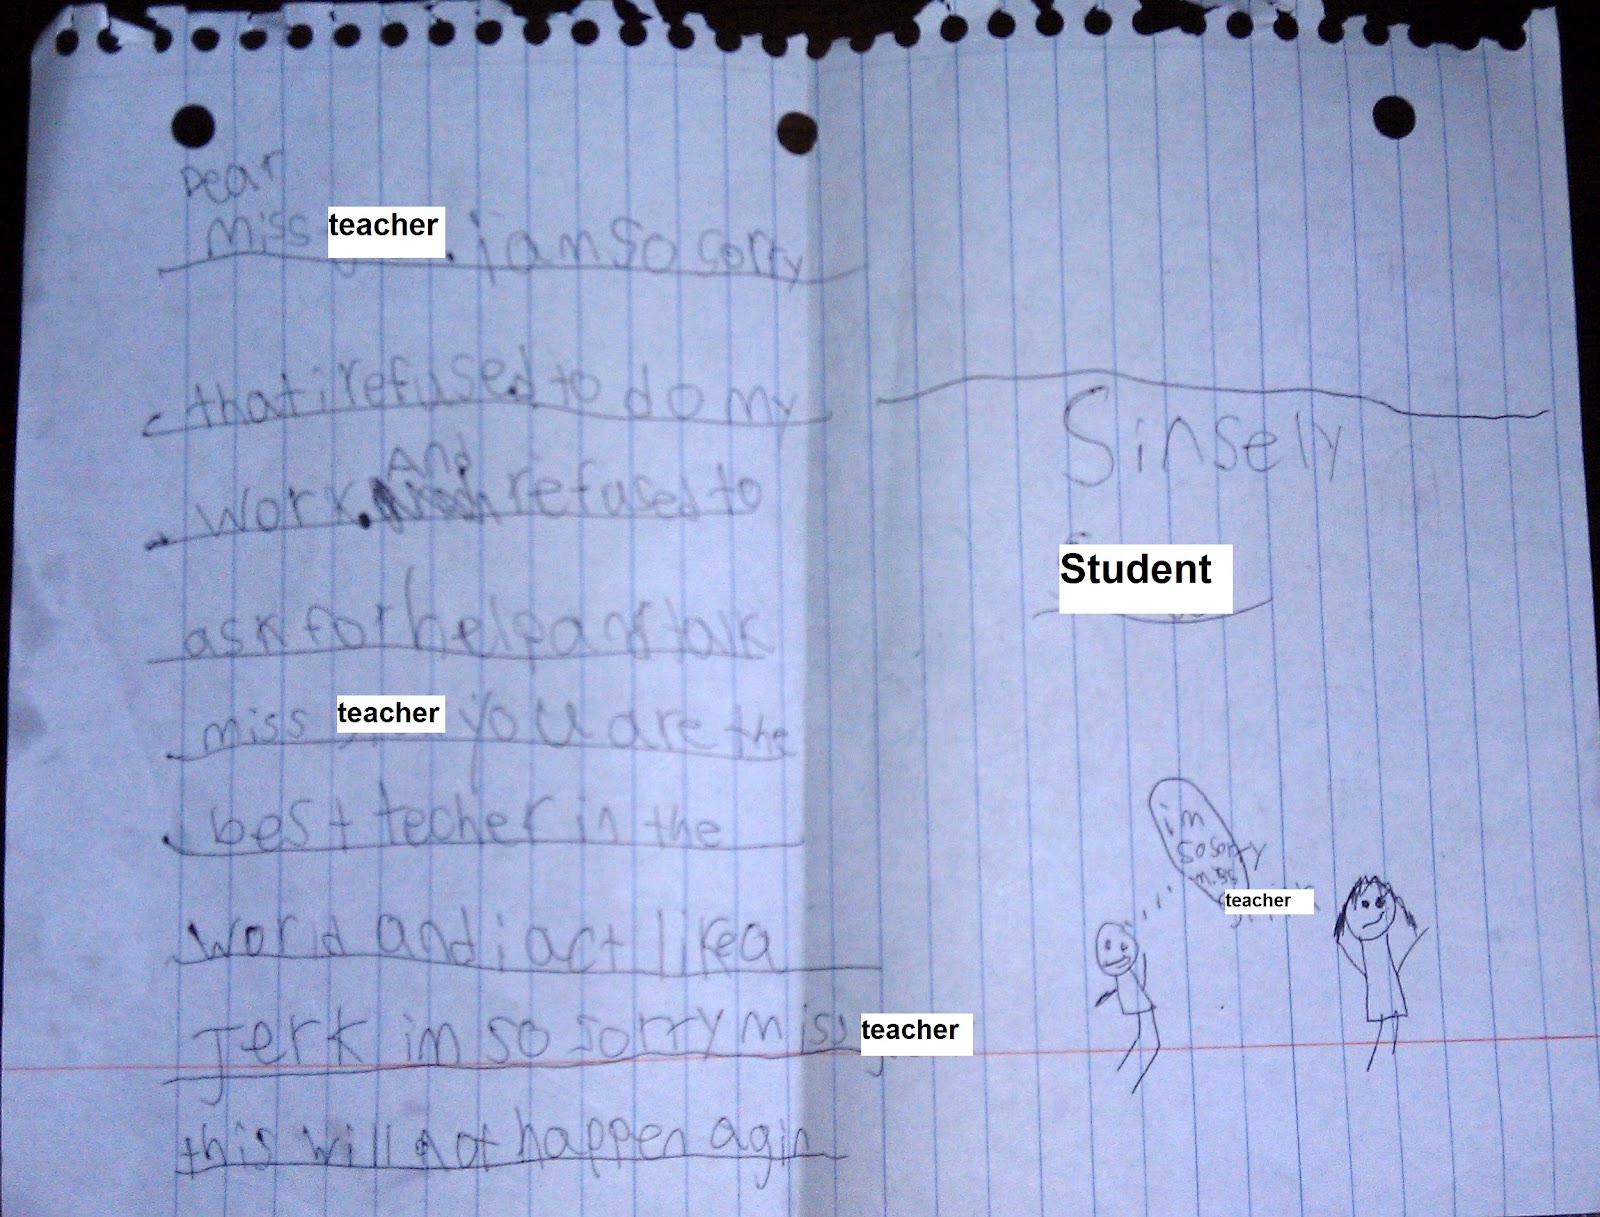 Dear
miss teacher. i am so sorry
that i refused to do my
work. And refused to
ask for help and talk
miss teacher you are the
best techer in the
world and i act like a
Jerk im so sorry miss teacher
this will not happen agin
Sinsely
Student
im
so sorry
miss
teacher